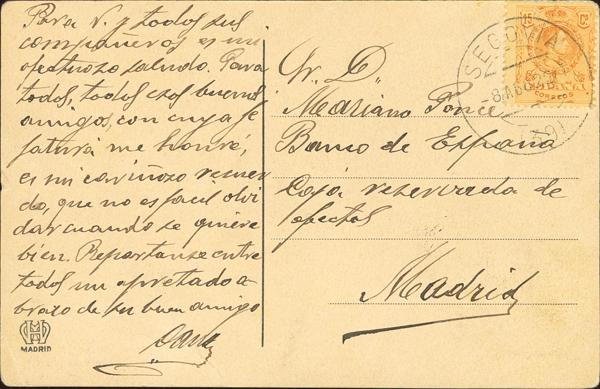 Para V. y todos sus
compañeros es mi
afectuoso saludo. Para
todos, todos esos buenos
amigos, con cuya je
fatura me honré,
es mi cariñoso recuer
do, que no es facil olvi
dar cuando se quiere
bien. Repartanse entre
todos un apretado a
brazo de su buen amigo
MADRID
Sr. D.
Mariano Ponce
Banco de España
Caja reservada de
efectos
Madrid
15 Cs.
CORREOS
SEGOVIA